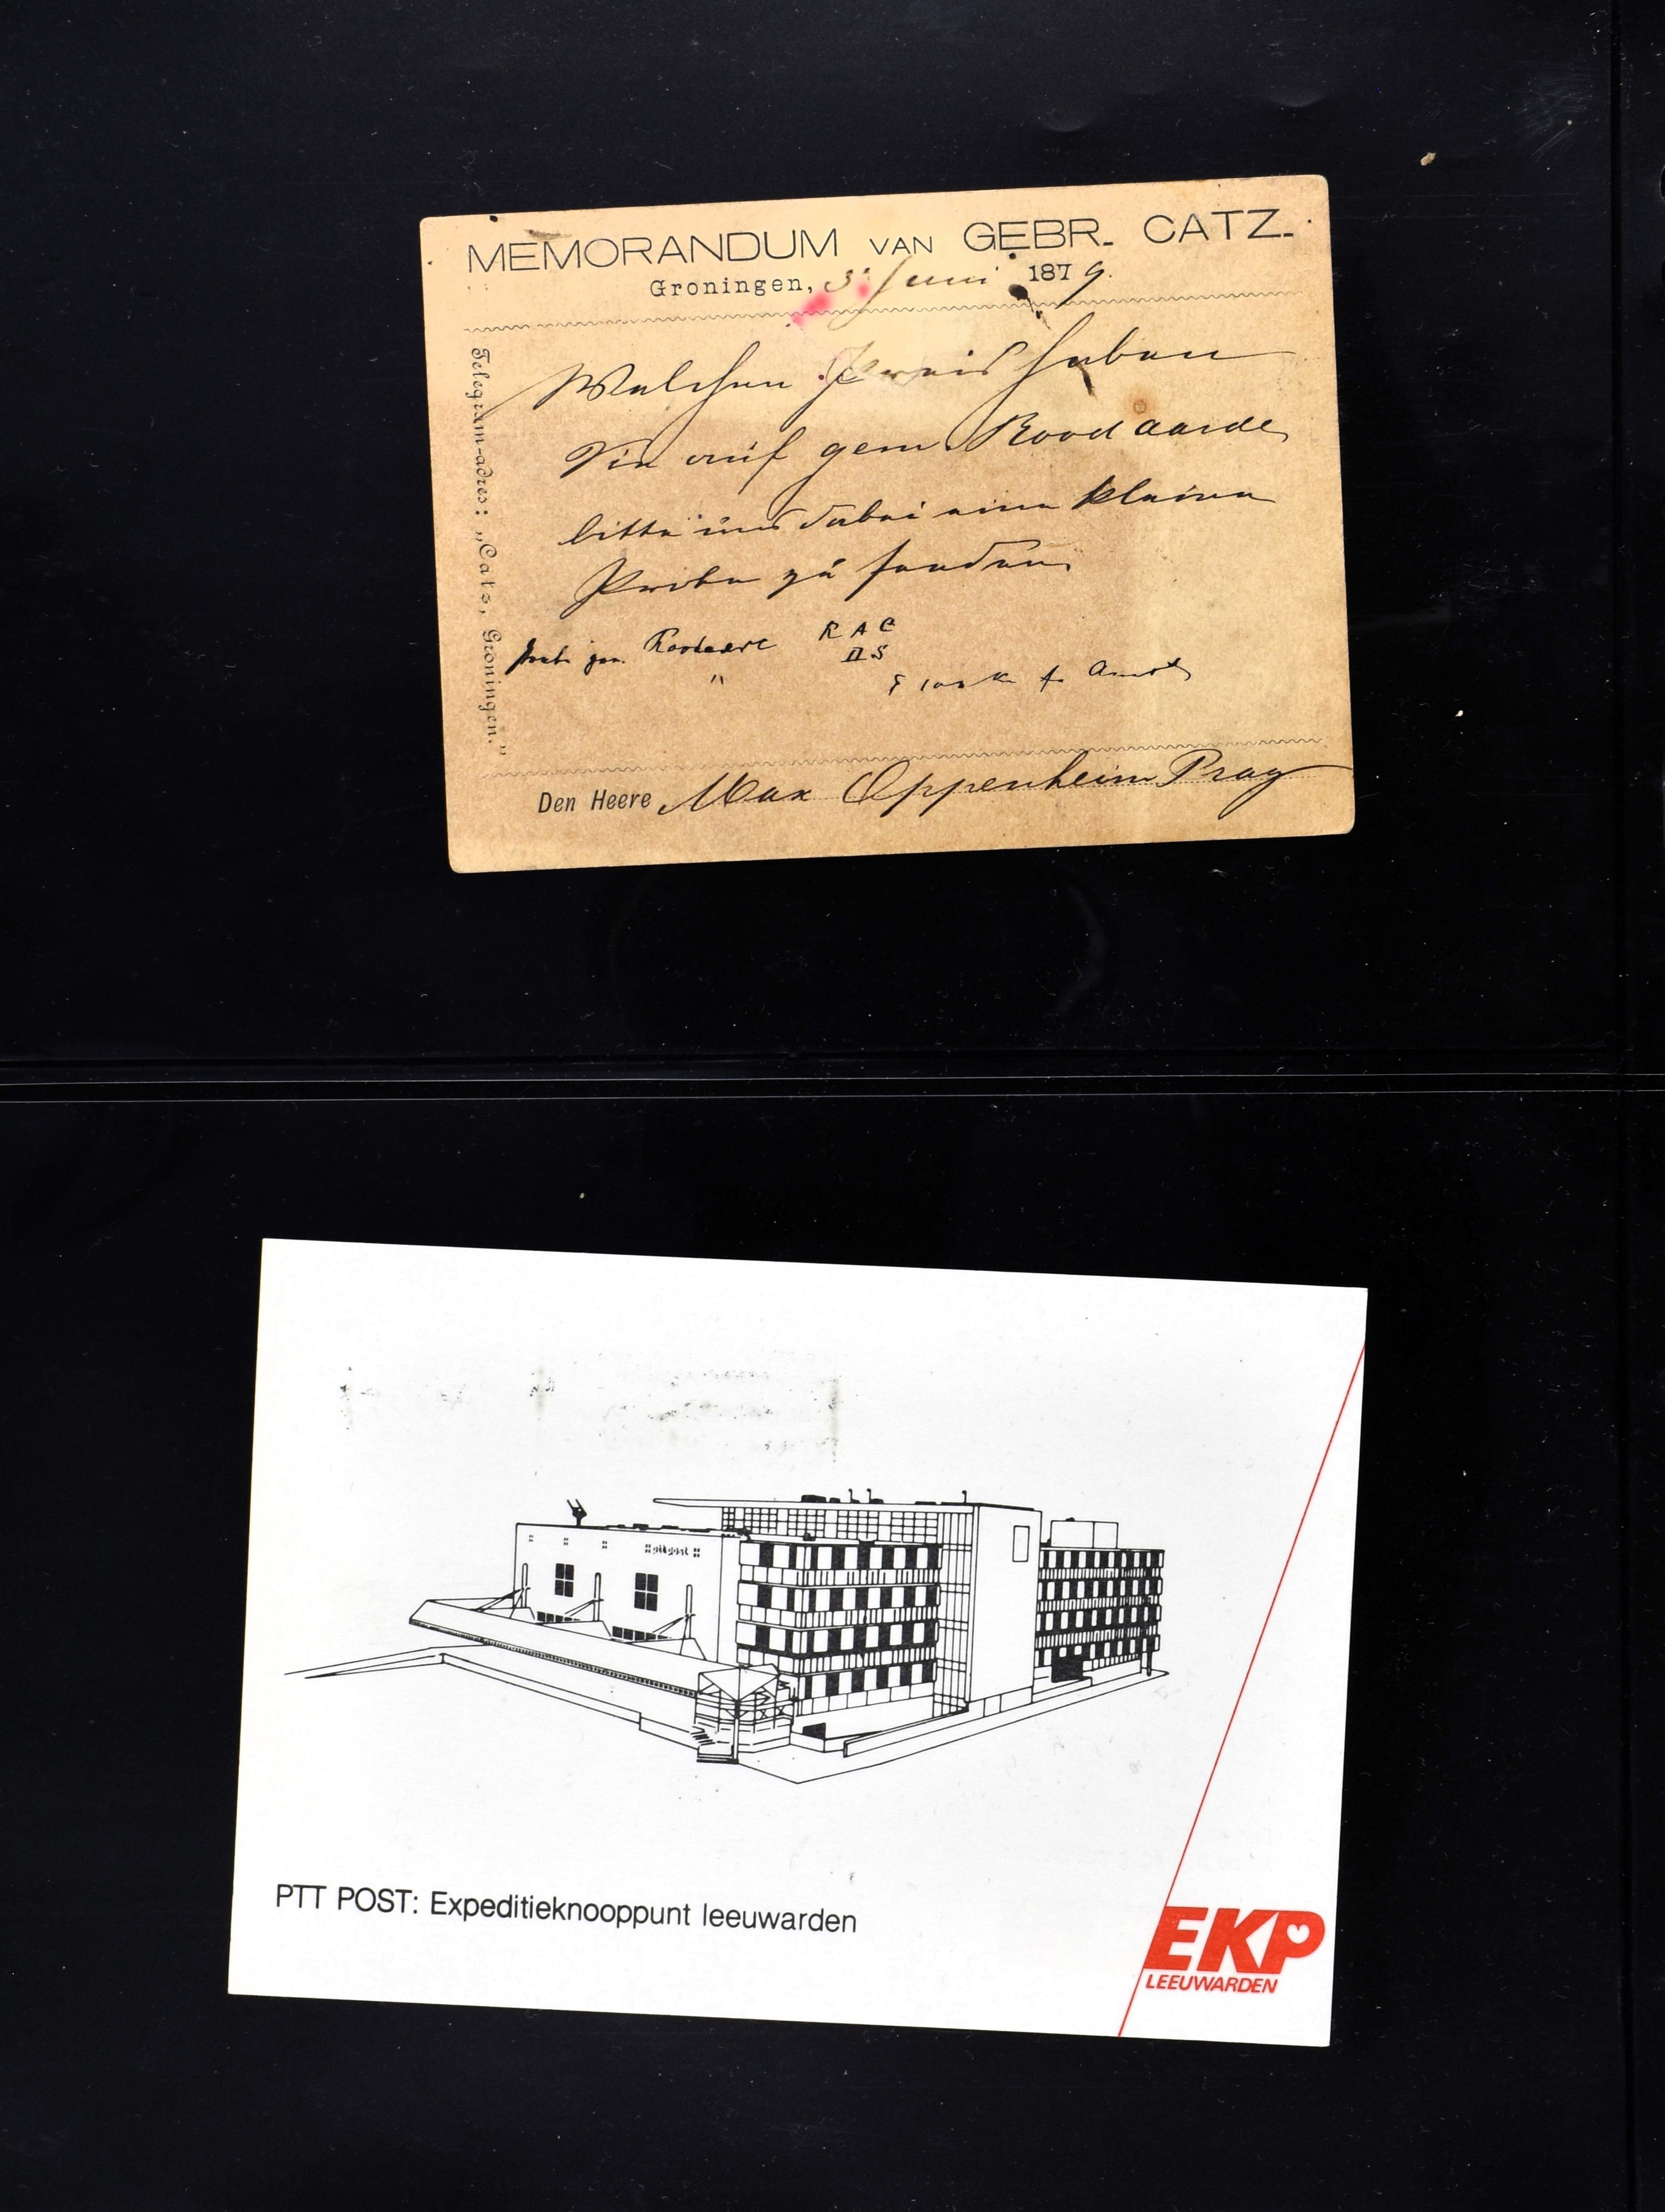 MEMORANDUM VAN GEBR. CATZ.
Groningen, 3 Juni 1879.
Telegram-adres: „Catz, Groningen."
Welchen Preis haben
Sie auf gem. Roodaarde
bitte uns dabei eine kleine
Probe zu senden
RAC
IIS
Den Heere Max Oppenheim Prag
PTT POST: Expeditieknooppunt leeuwarden
EKP
LEEUWARDEN